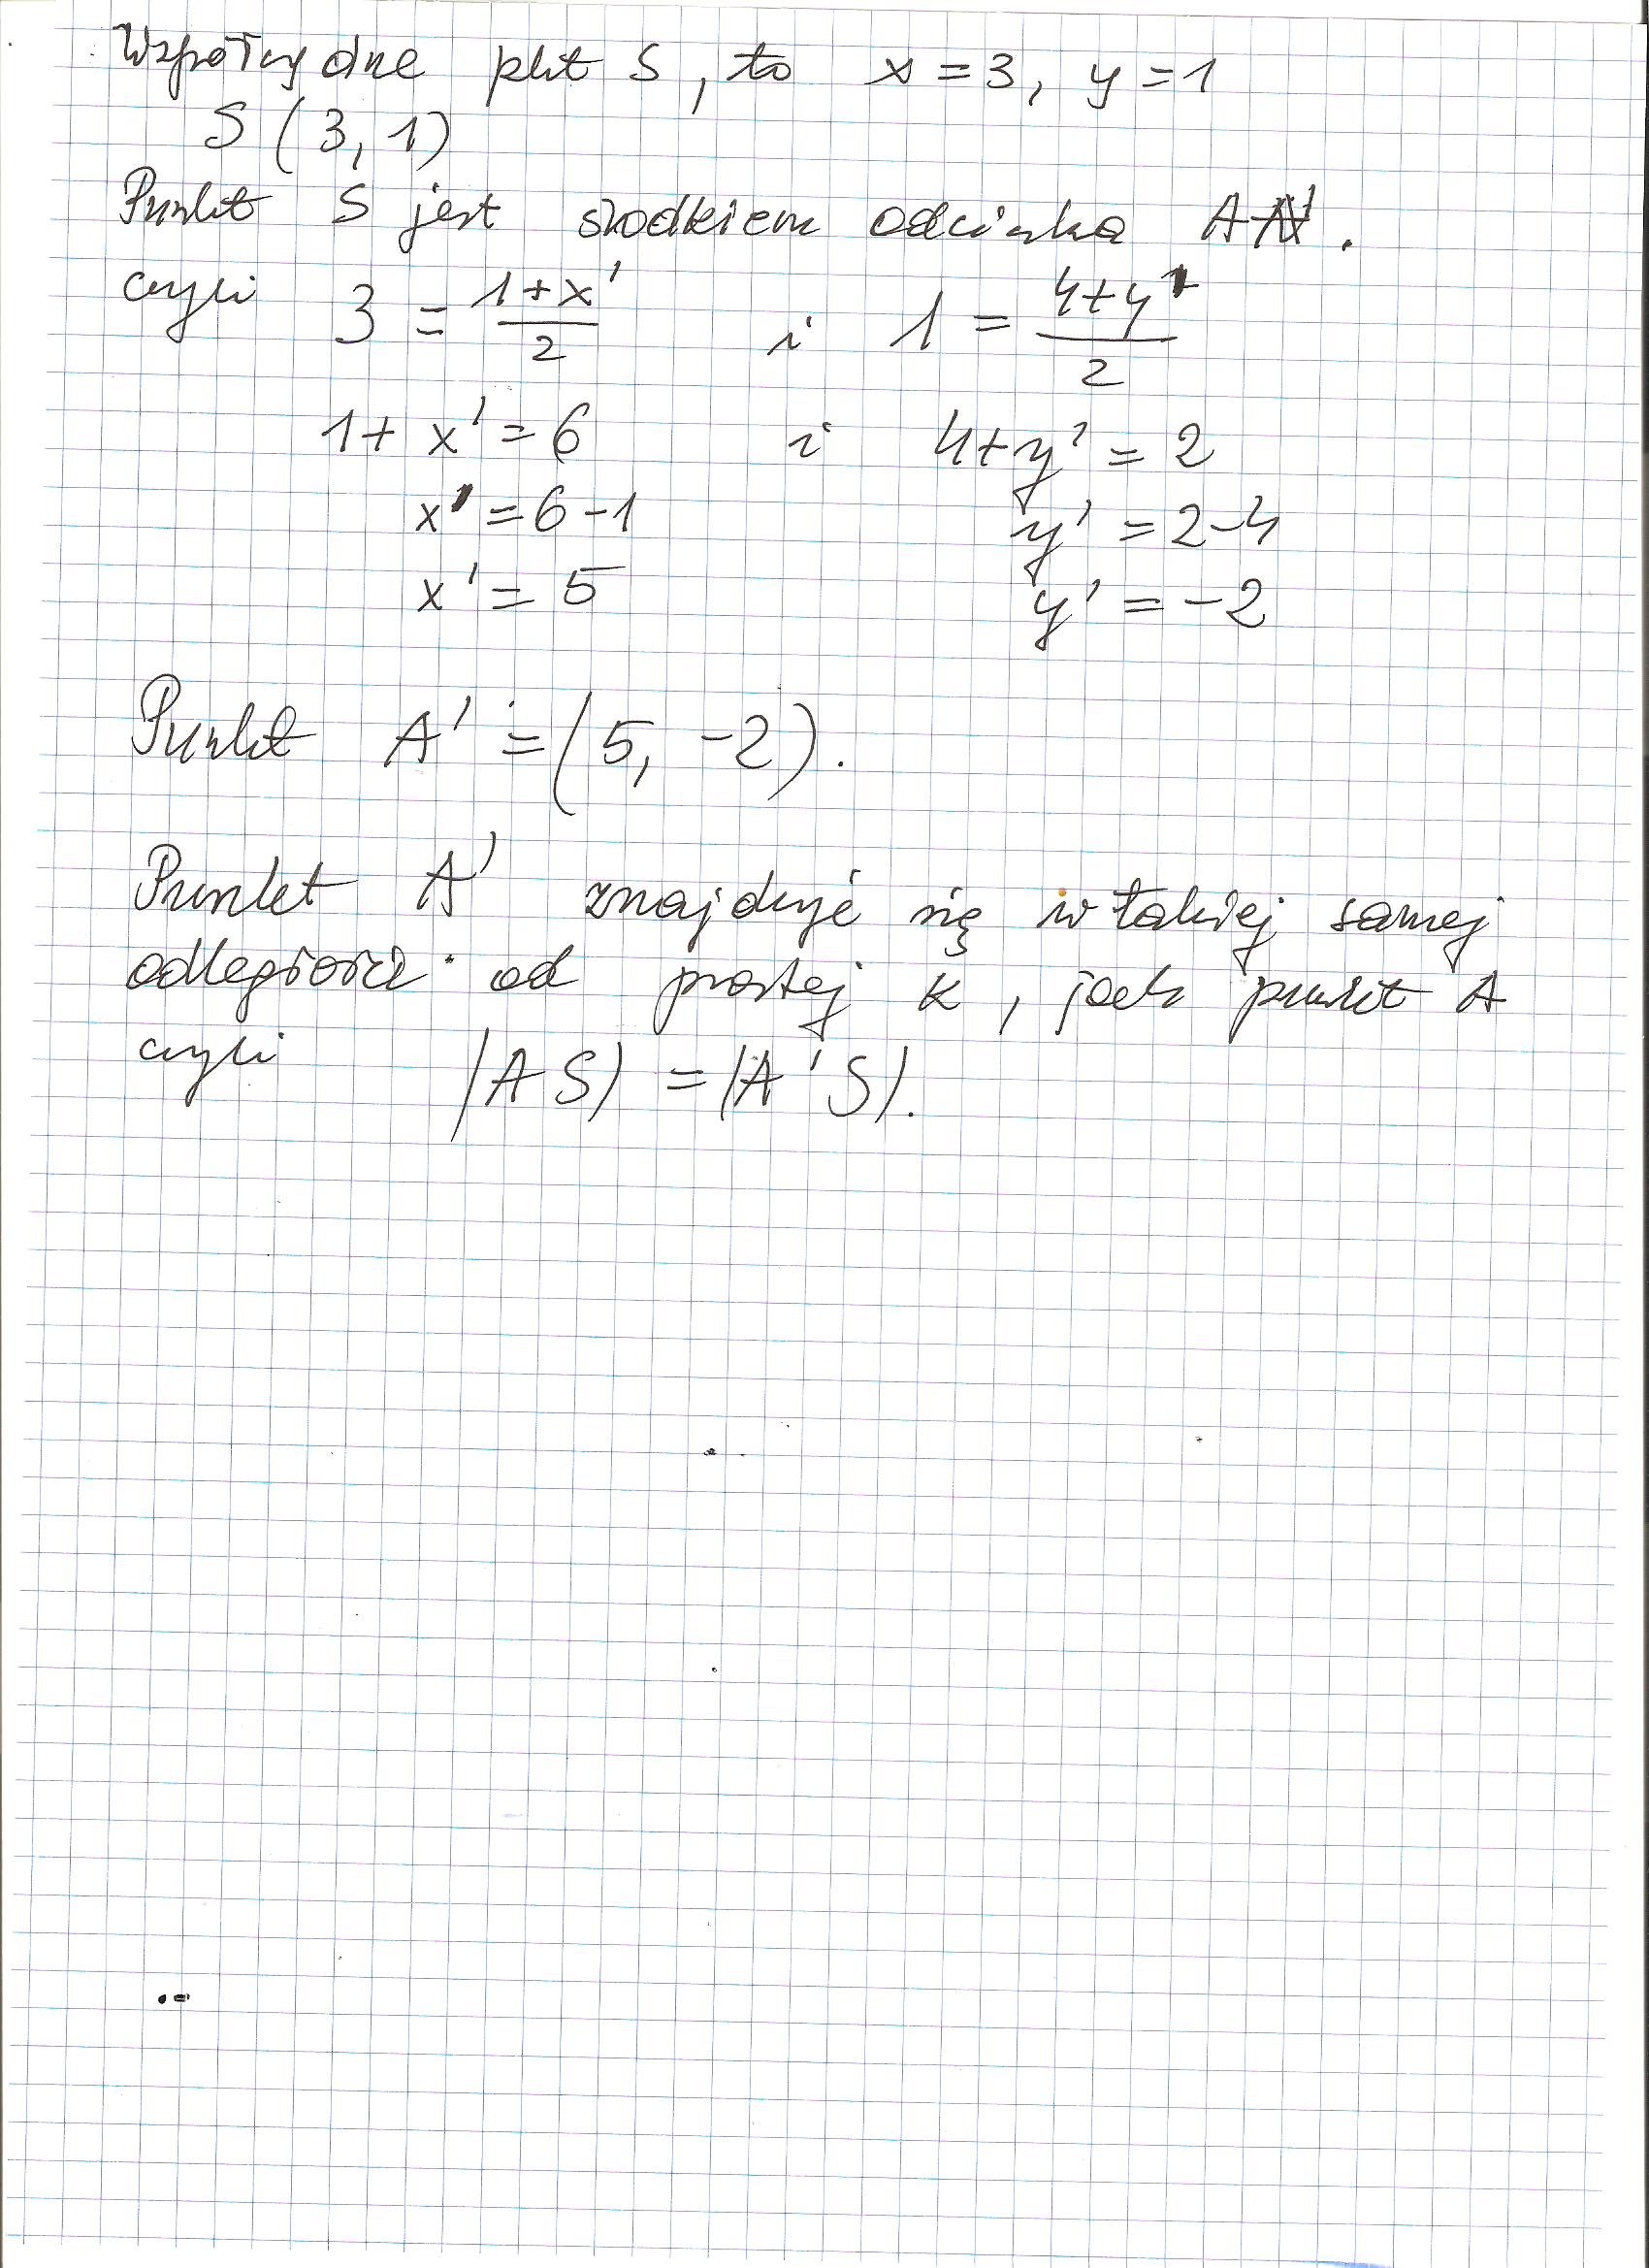 Współrzędne pkt S, to x = 3, y = 1
S (3, 1)
Punkt S jest środkiem odcinka AA'.
czyli 3 = \frac{1+x'}{2} i 1 = \frac{4+y'}{2}
1 + x' = 6 i 4+y' = 2
x' = 6 - 1 y' = 2-4
x' = 5 y' = -2
Punkt A' = (5, -2).
Punkt A' znajduje się w takiej samej
odległości od prostej k, jak punkt A
czyli |AS| = |A'S|.